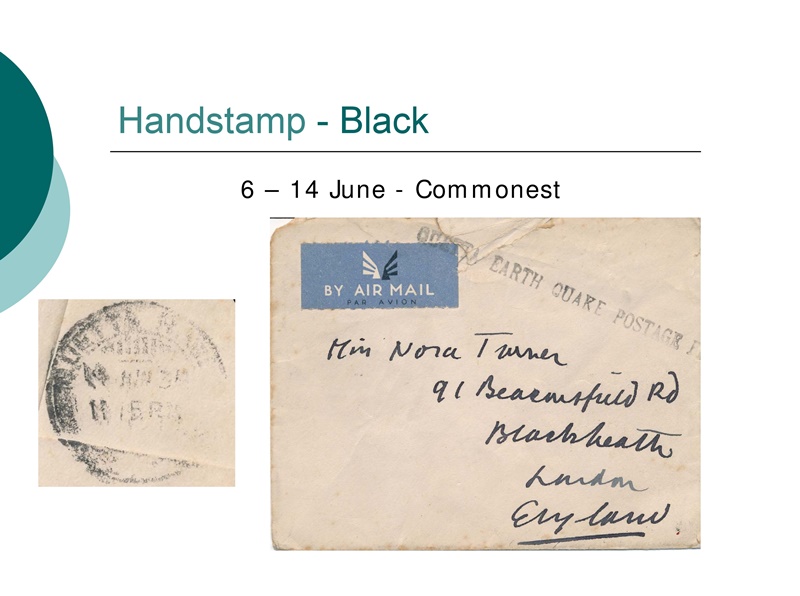 Handstamp - Black
6 – 14 June - Commonest
QUETTA EARTH QUAKE POSTAGE
BY AIR MAIL
PAR AVION
Miss Nora Turner
91 Beaconsfield Rd
Blackheath
London
England